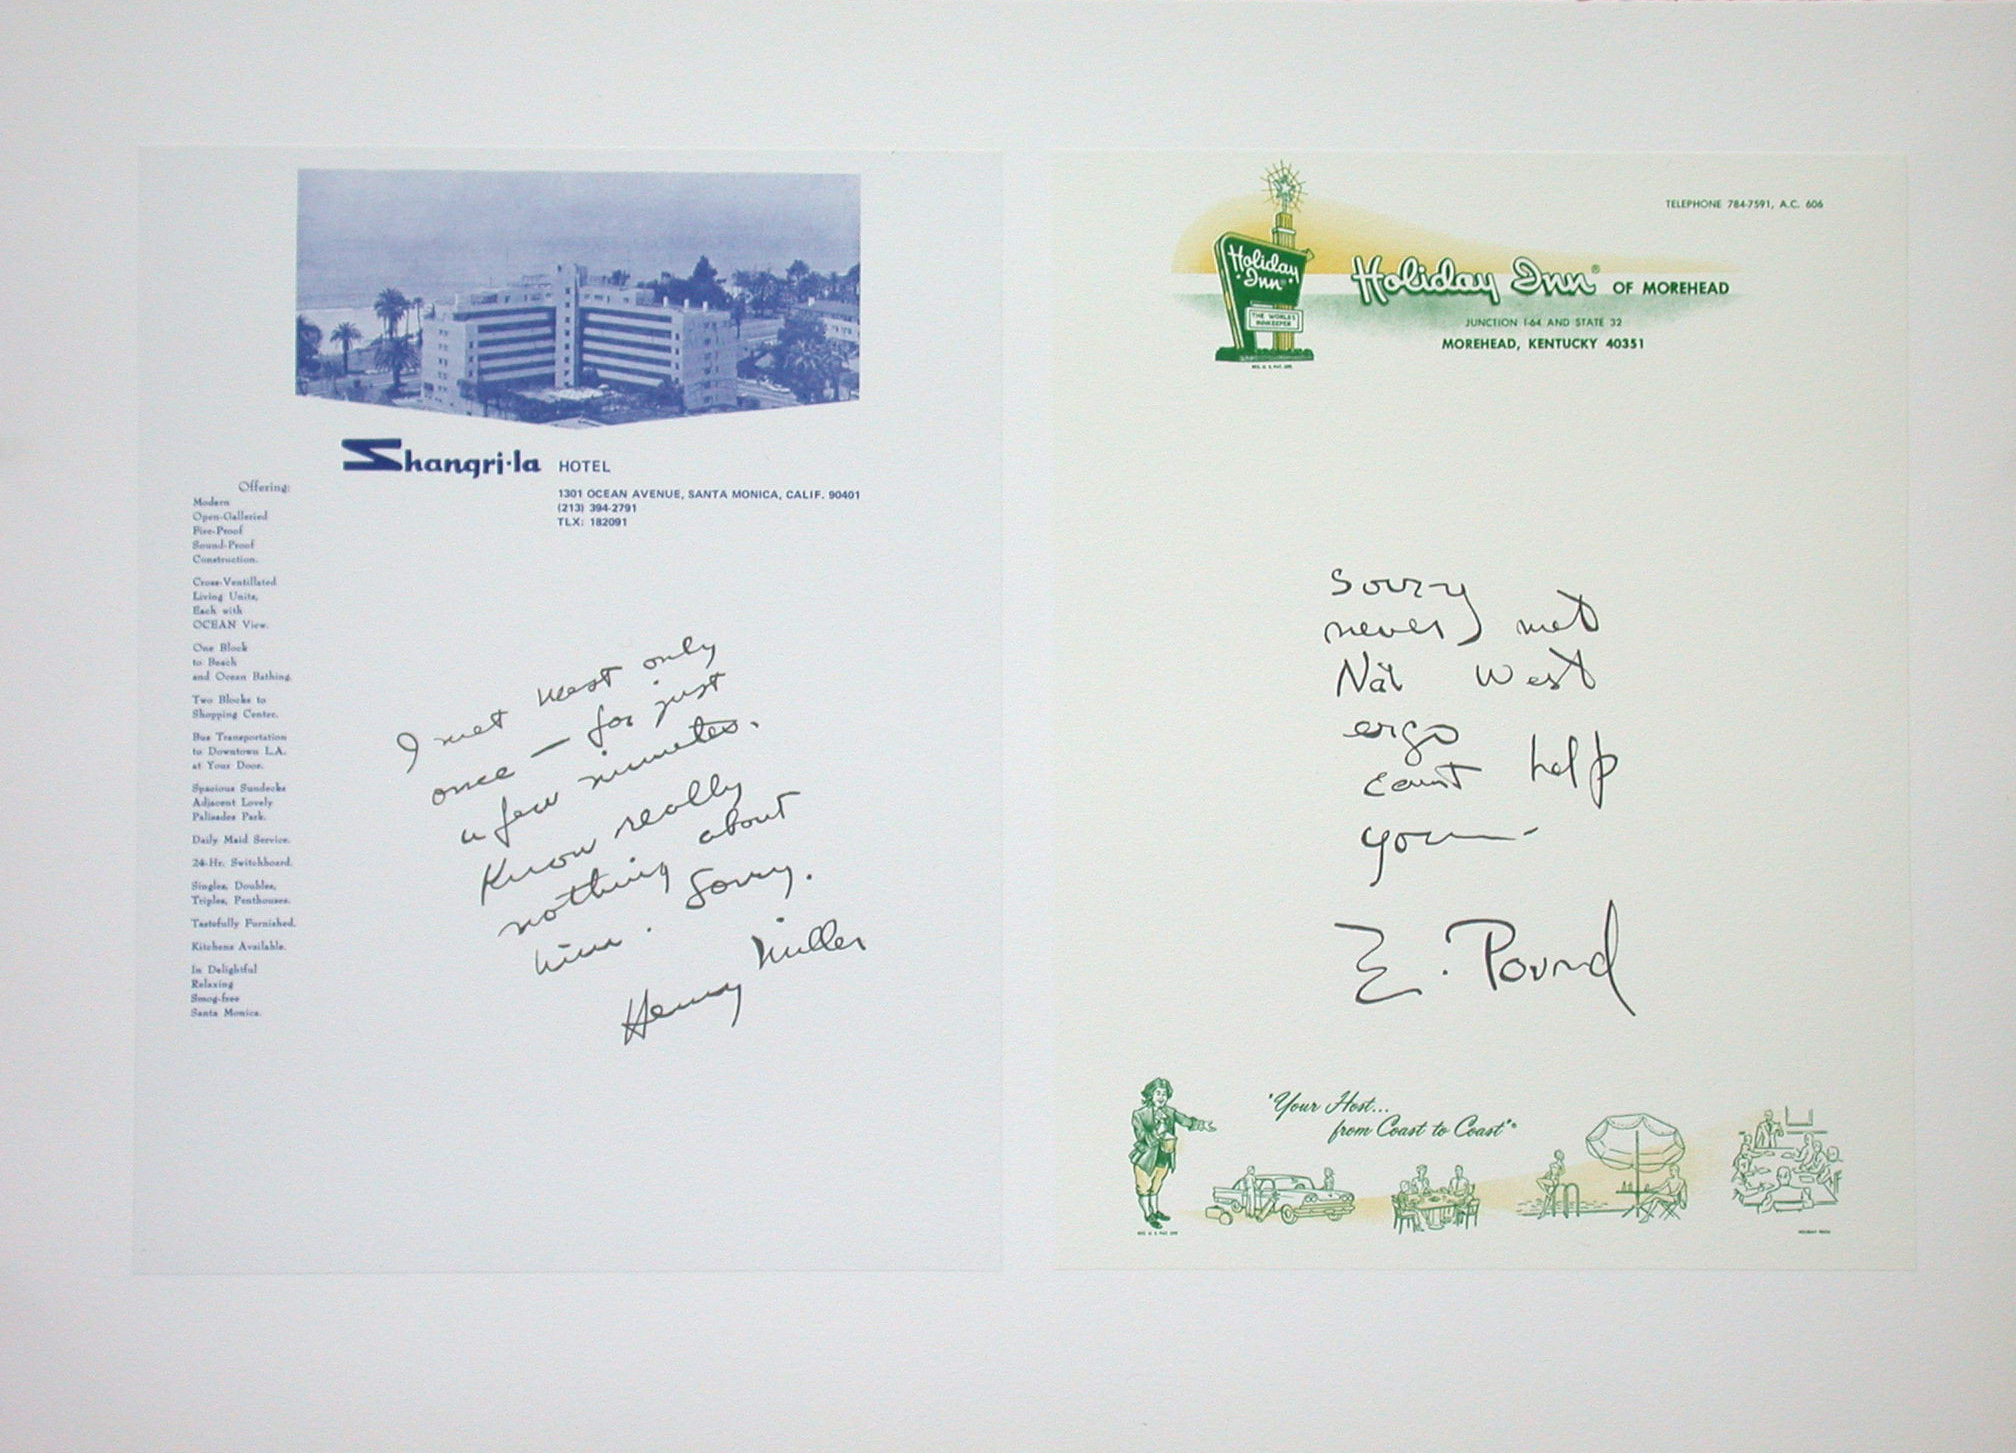 Shangri·la HOTEL
1301 OCEAN AVENUE, SANTA MONICA, CALIF. 90401
(213) 394-2791
TLX: 182091
Offering:
Modern
Open-Galleried
Fire-Proof
Sound-Proof
Construction.
Cross-Ventillated
Living Units,
Each with
OCEAN View.
One Block
to Beach
and Ocean Bathing.
Two Blocks to
Shopping Center.
Bus Transportation
to Downtown L.A.
at Your Door.
Spacious Sundecks
Adjacent Lovely
Palisades Park.
Daily Maid Service.
24-Hr. Switchboard.
Singles, Doubles,
Triples, Penthouses.
Tastefully Furnished.
Kitchens Available.
In Delightful
Relaxing
Smog-free
Santa Monica.
I met West only
once — for just
a few minutes.
Know really
nothing about
him. Sorry.
Henry Miller
TELEPHONE 784-7591, A.C. 606
Holiday
Inn®
THE WORLD'S
INNKEEPER
REG. U. S. PAT. OFF.
Holiday Inn® OF MOREHEAD
JUNCTION I-64 AND STATE 32
MOREHEAD, KENTUCKY 40351
Sorry
never met
Nat West
ergo
cant help
you-
E. Pound
"Your Host...
from Coast to Coast"®
REG. U. S. PAT. OFF.
HOLIDAY PRESS